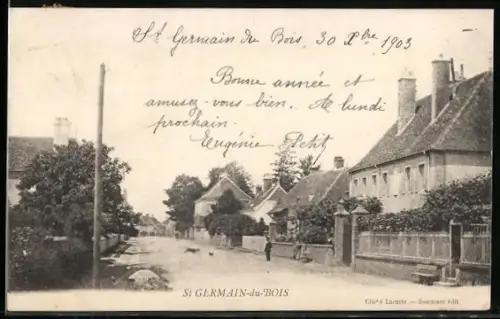 St Germain du Bois, 30 Xbre 1903
Bonne année et
amusez-vous bien. A lundi
prochain.
Eugénie Petit
St GERMAIN-du-BOIS
Cliché — édit.